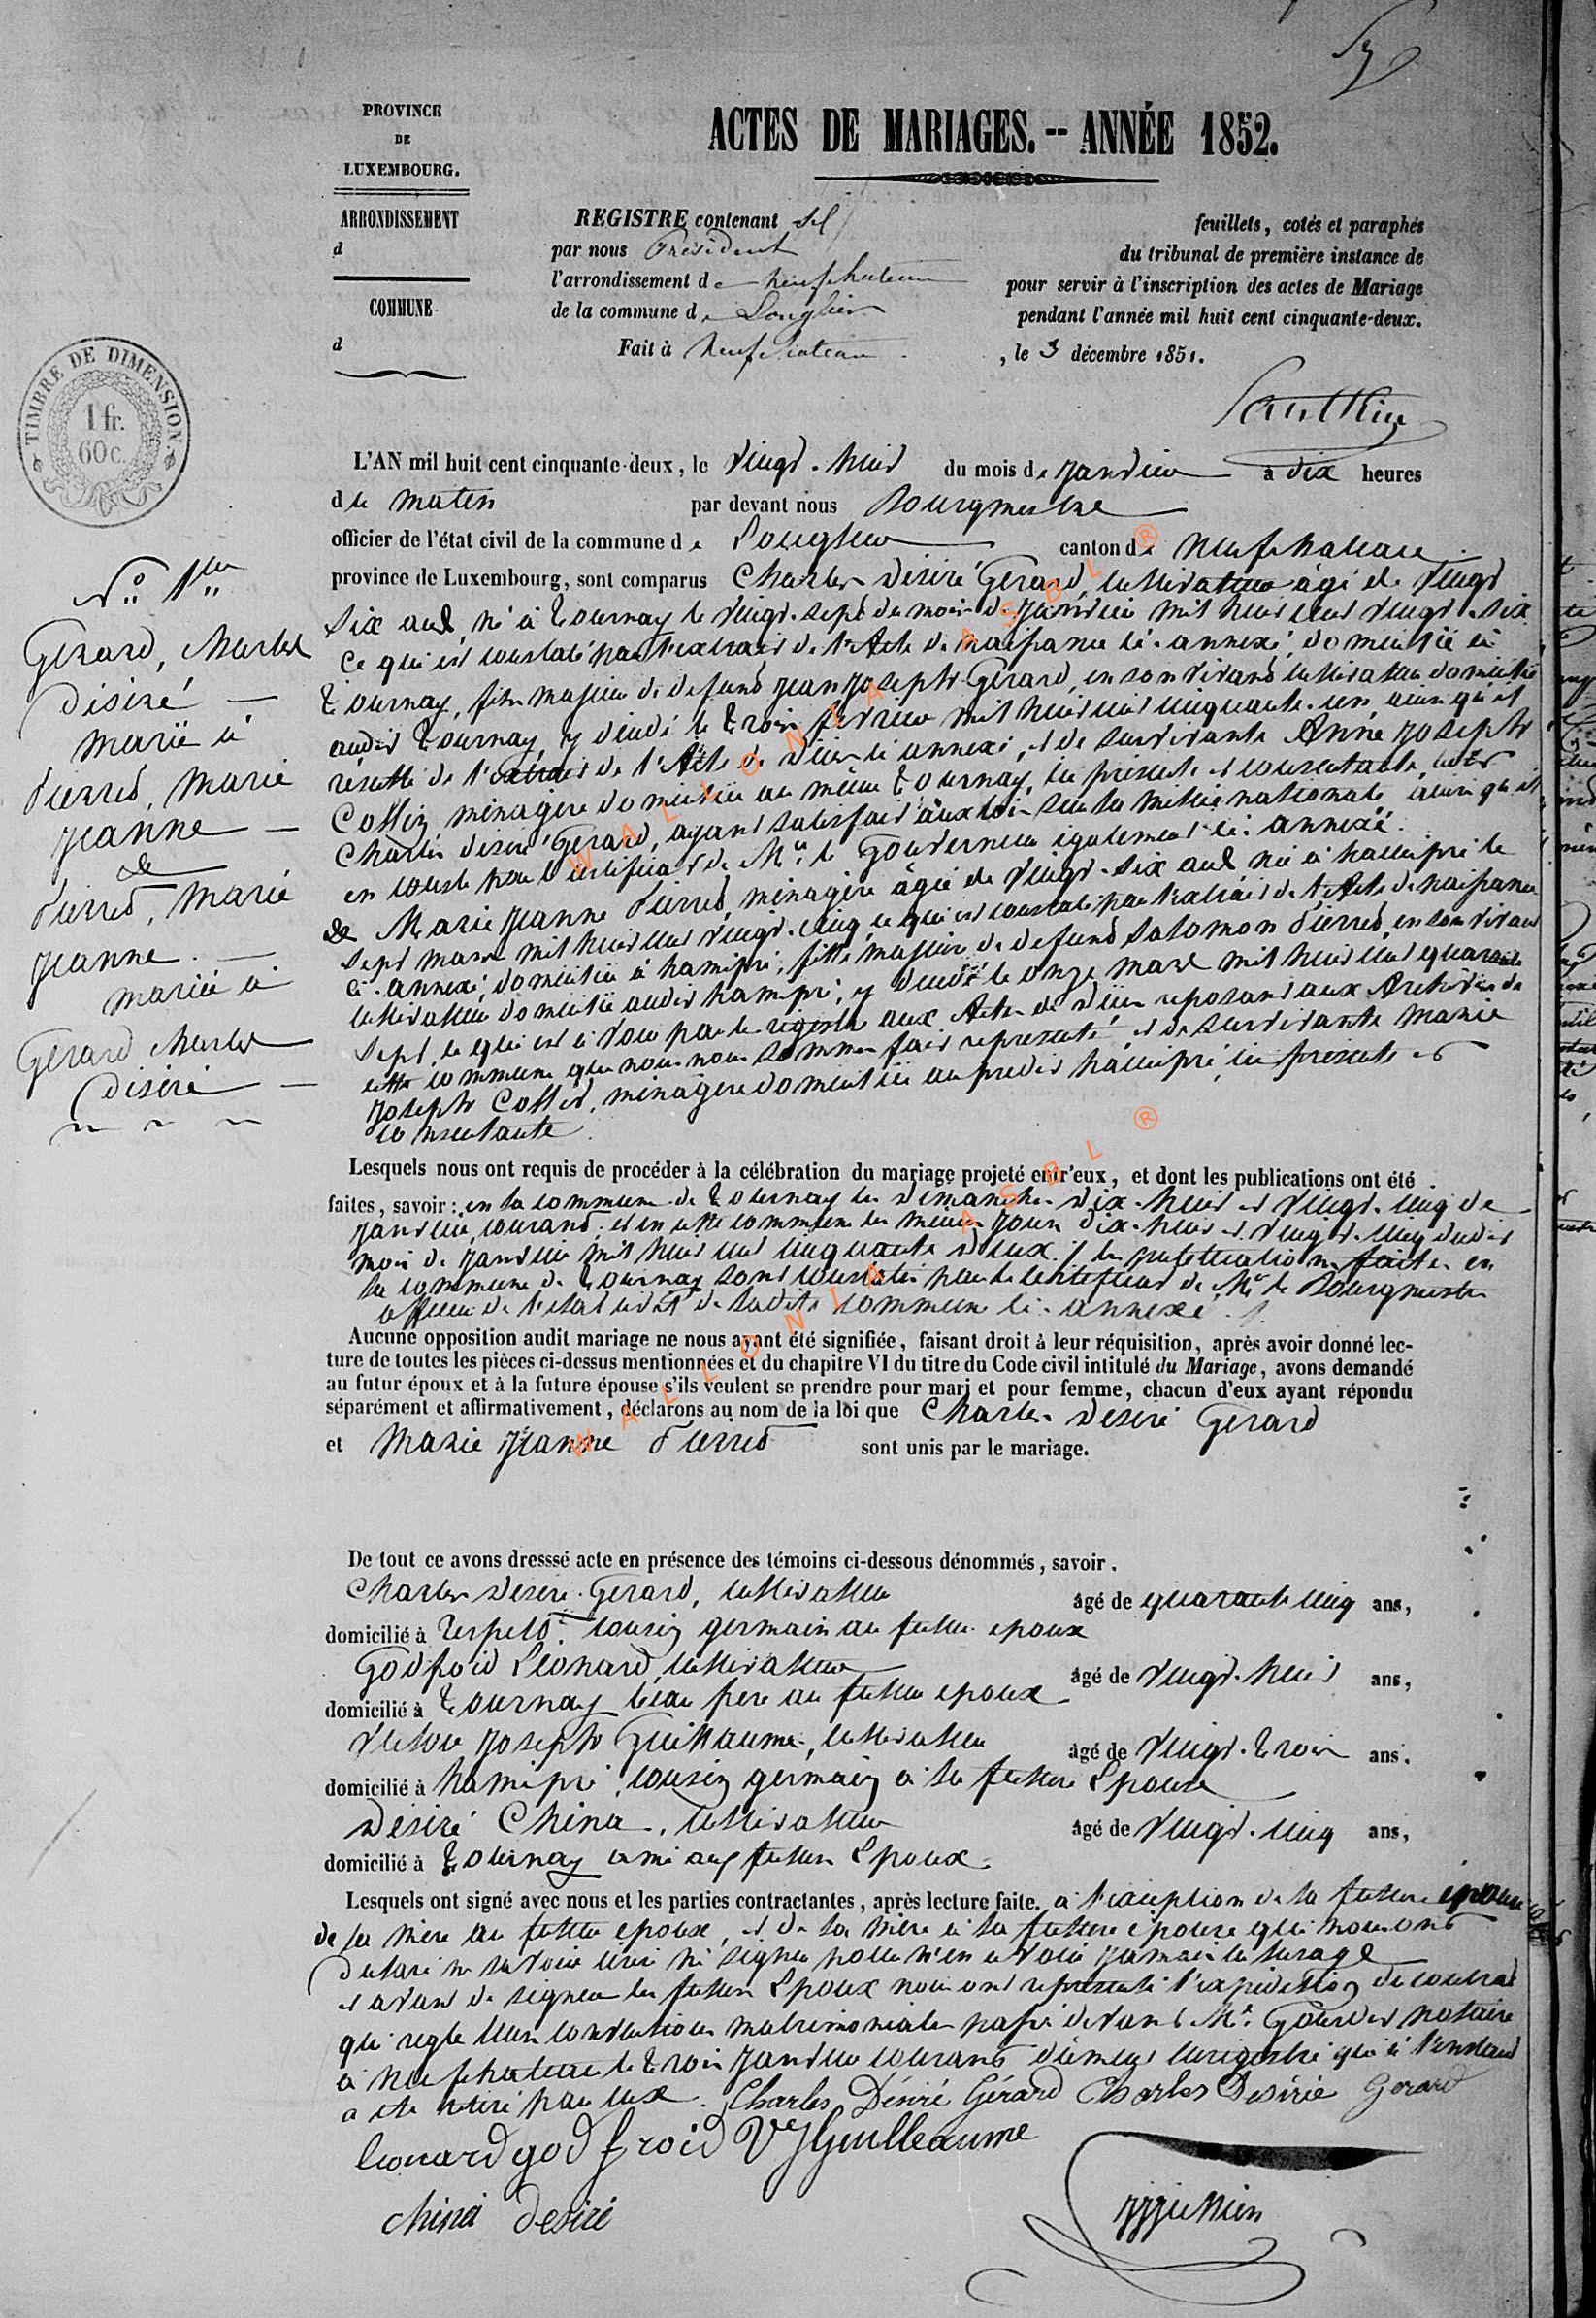 PROVINCE
DE
LUXEMBOURG.
ARRONDISSEMENT
d
COMMUNE
d
ACTES DE MARIAGES.-- ANNÉE 1852.
REGISTRE contenant feuillets, cotés et paraphés
par nous Président du tribunal de première instance de
l'arrondissement de neufchateau pour servir à l'inscription des actes de Mariage
de la commune de Longlier pendant l'année mil huit cent cinquante-deux.
Fait à neufchateau , le 3 décembre 1851.
TIMBRE DE DIMENSION.
1 fr.
60 c.
L'AN mil huit cent cinquante-deux, le vingt-huit du mois de janvier à dix heures
du matin par devant nous Bourgmestre
officier de l'état civil de la commune de Longlier canton de neufchateau
N° 1er
Gerard, Charles
Désiré
marié à
Pierret, Marie
Jeanne
&
Pierret, Marie
Jeanne
mariée à
Gerard Charles
Désiré
province de Luxembourg, sont comparus Charles Désiré Gerard, cultivateur âgé de vingt
six ans, né à Tournay le vingt-sept du mois de janvier mil huit cent vingt-six
ce qui est constaté par l'extrait de l'Acte de naissance ci-annexé, domicilié à
Tournay, fils majeur de defunt Jean Joseph Gerard, en son vivant cultivateur domicilié
audit Tournay, y décédé le trois fevrier mil huit cent cinquante-un, ainsi qu'il
résulte de l'extrait de l'Acte de décès ci annexé, et de survivante Anne Joseph
Collin, ménagère domiciliée au même Tournay, ici présente et consentante, ledit
Charles Désiré Gerard, ayant satisfait aux lois sur la milice nationale, ainsi qu'il
en conste par certificat de Mr le Gouverneur également ci-annexé.
& Marie Jeanne Pierret, ménagère âgée de vingt-six ans, née à hamipré le
sept mars mil huit cent vingt-cinq, ce qui est constaté par l'extrait de l'Acte de naissance
ci-annexé, domiciliée à hamipré, fille majeure de defunt Salomon Pierret, en son vivant
cultivateur domicilié audit hamipré, y décédé le onze mars mil huit cent quarante
sept, ce qui est à voir par le registre aux Actes de décès reposant aux Archives de
cette commune que nous nous sommes fait représenté, et de survivante Marie
Joseph Collet, ménagère domiciliée au predit hamipré, ici présente et
consentante.
Lesquels nous ont requis de procéder à la célébration du mariage projeté entr'eux, et dont les publications ont été
faites, savoir: en la commune de Tournay les Dimanches dix-huit et vingt-cinq de
janvier, courant, et en cette commune les mêmes jours dix-huit et vingt-cinq dudit
mois de janvier mil huit cent cinquante deux, les publications faites en
la commune de Tournay sont constatées par le certificat de Mr le Bourgmestre
officier de l'état civil de ladite commune ci-annexé.
Aucune opposition audit mariage ne nous ayant été signifiée, faisant droit à leur réquisition, après avoir donné lec-
ture de toutes les pièces ci-dessus mentionnées et du chapitre VI du titre du Code civil intitulé du Mariage, avons demandé
au futur époux et à la future épouse s'ils veulent se prendre pour mari et pour femme, chacun d'eux ayant répondu
séparément et affirmativement, déclarons au nom de la loi que Charles Désiré Gerard
et Marie Jeanne Pierret sont unis par le mariage.
De tout ce avons dresssé acte en présence des témoins ci-dessous dénommés, savoir.
Charles Désiré Gerard, cultivateur âgé de quarante cinq ans,
domicilié à Respelt, cousin germain au futur epoux
Godfroid Léonard, cultivateur âgé de vingt-huit ans,
domicilié à Tournay beau frere au futur epoux
Victor Joseph Guillaume, cultivateur âgé de vingt-trois ans.
domicilié à hamipré, cousin germain à la future Epouse
Désiré China, cultivateur âgé de vingt-cinq ans,
domicilié à Tournay ami aux futurs Epoux.
Lesquels ont signé avec nous et les parties contractantes, après lecture faite. à l'exception de la future épouse
de la mère au futur epoux, et de la mère à la future épouse qui nous ont
declaré ne savoir écrire ni signer pour n'en avoir jamais eu l'usage
et avant de signer les futurs Epoux nous ont représenté l'expedition du contrat
qui regle leurs conventions matrimoniales passé devant Mr. notaire
à neufchateau le trois janvier courant dûment enregistré qui à l'instant
a été retiré par eux. Charles Désiré Gérard Charles Desirée Gerard
leonard godfroid V J Guilleaume
china desiré
WALLONIA ASBL ®
WALLONIA ASBL ®